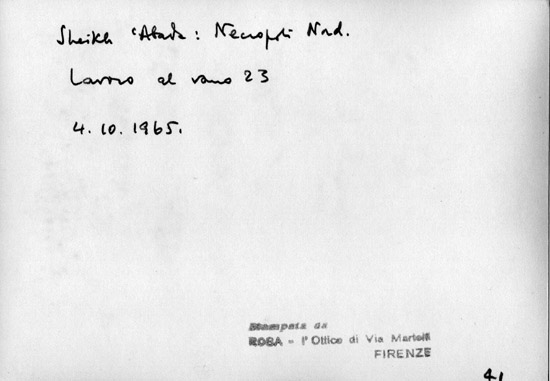 Sheikh 'Abada: Necropoli Nord.
Lavoro al vano 23
4.10.1965.
Stampata da
ROSA - l'Ottico di Via Martelli
FIRENZE
41